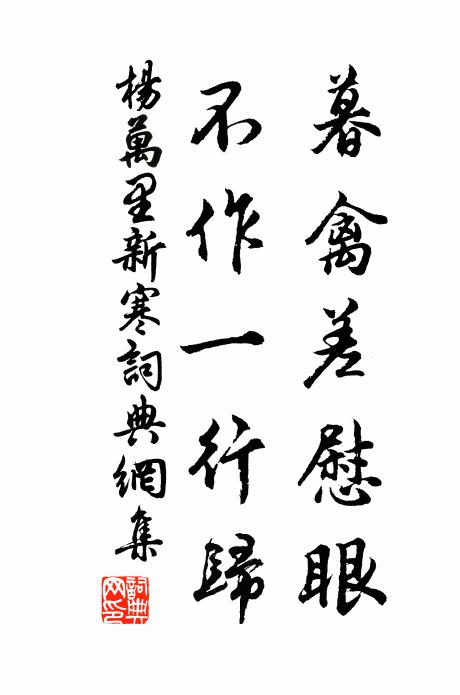 暮禽差慰眼
不作一行歸
楊萬里新寒詞典網集
詞典網印